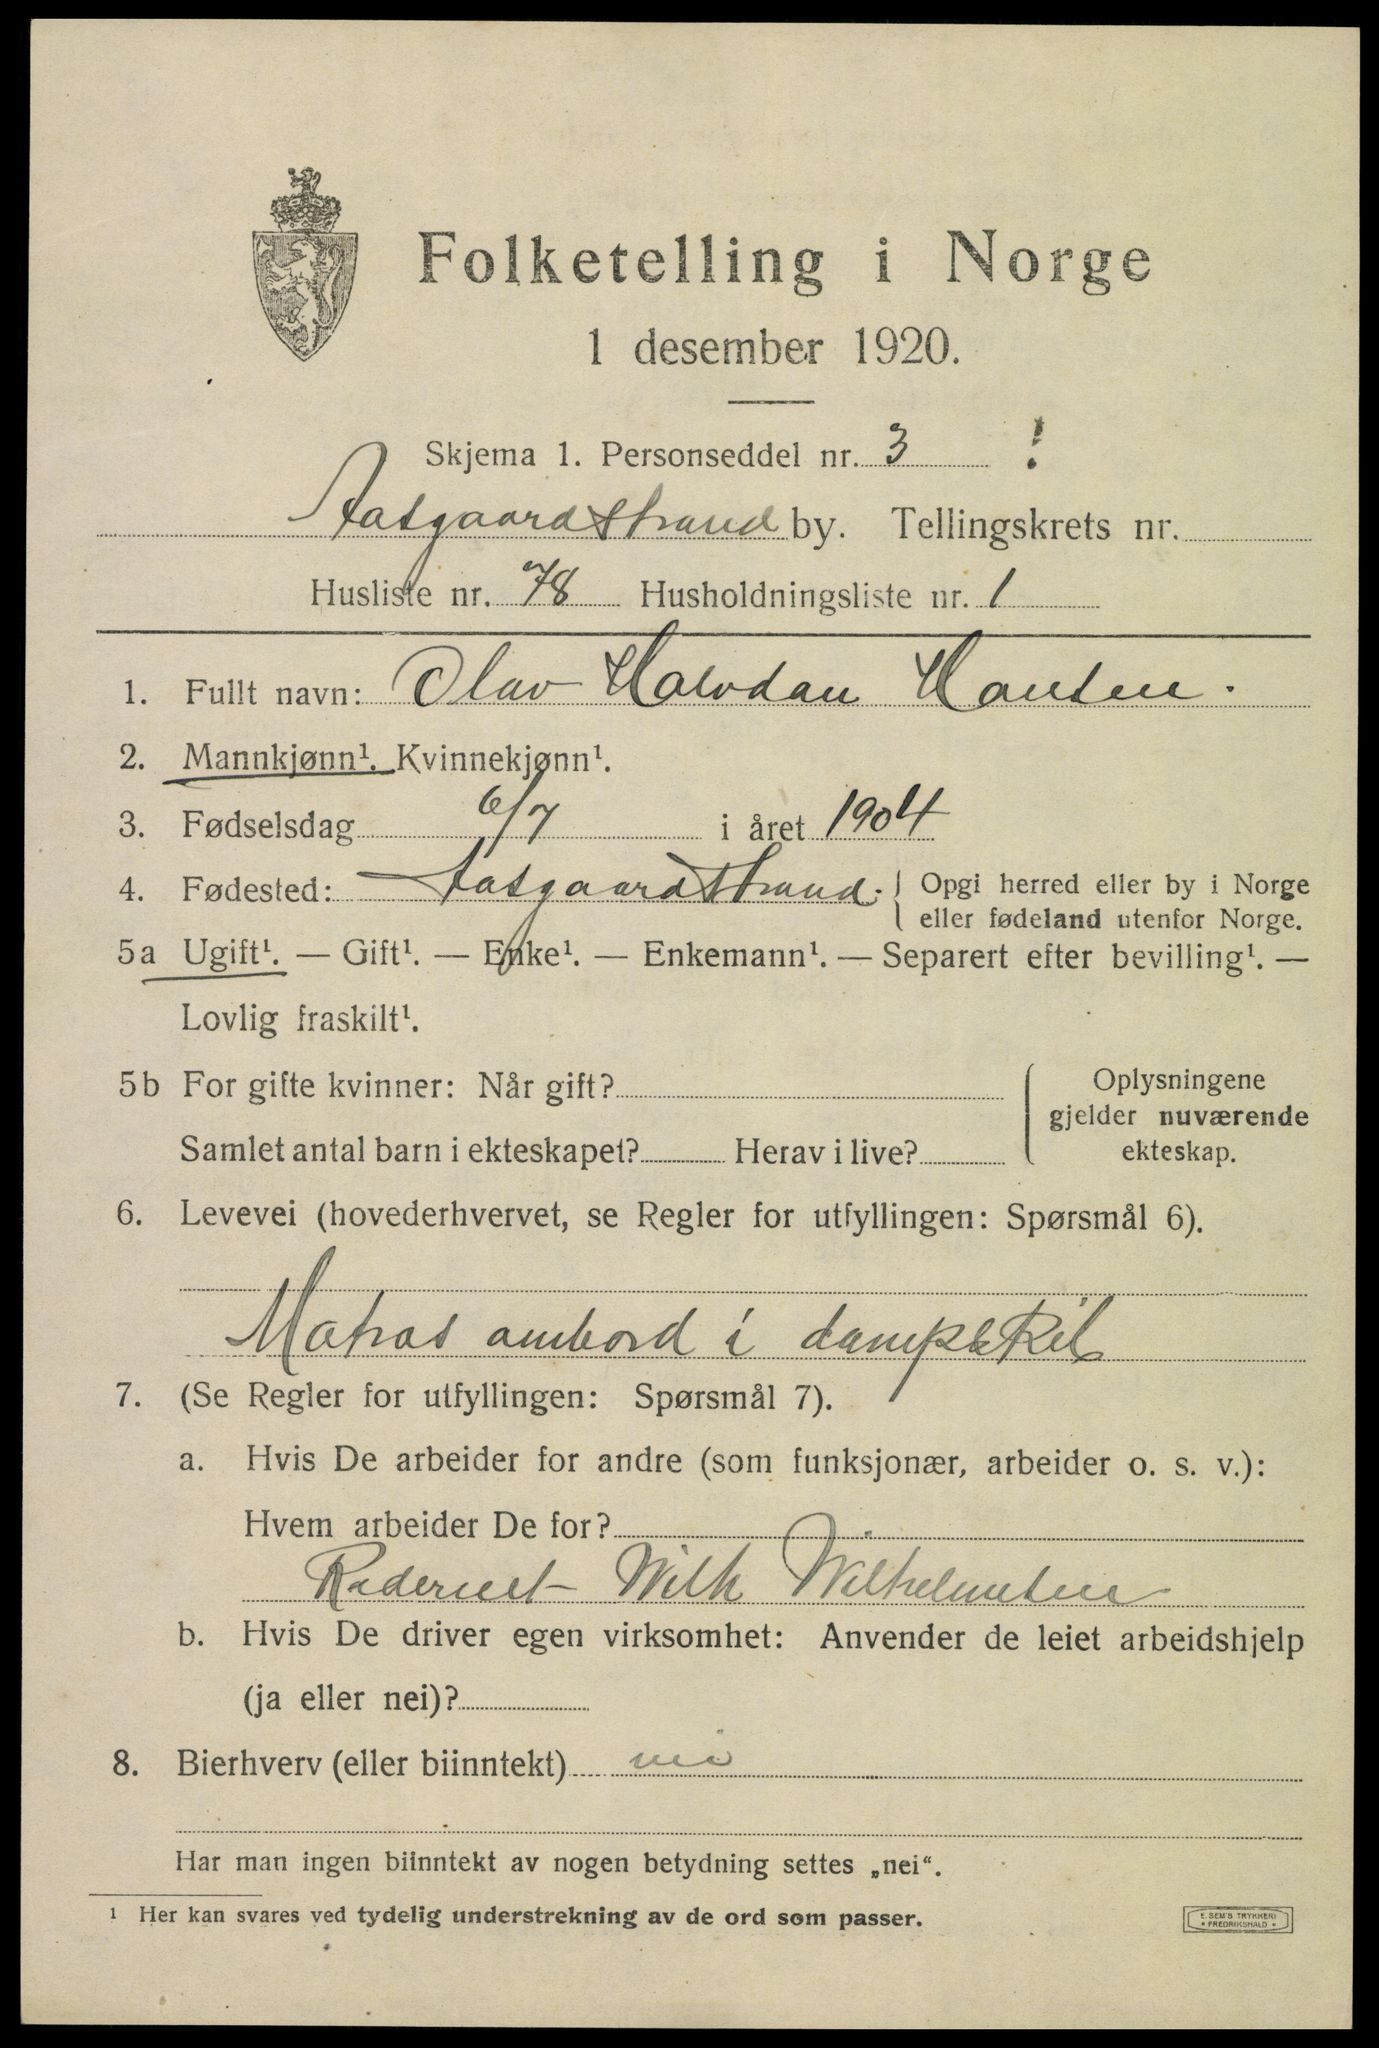 Folketelling i Norge
1 desember 1920.
Skjema 1. Personseddel nr. 3 !
Aasgaardstrand by. Tellingskrets nr.
Husliste nr. 78 Husholdningsliste nr. 1
1. Fullt navn: Olav Halvdan Hansen.
2. Mannkjønn¹. Kvinnekjønn¹.
3. Fødselsdag 6/7 i året 1904
4. Fødested: Aasgaardstrand. { Opgi herred eller by i Norge
eller fødeland utenfor Norge.
5a Ugift¹. — Gift¹. — Enke¹. — Enkemann¹. — Separert efter bevilling¹. —
Lovlig fraskilt¹.
5b For gifte kvinner: Når gift? { Oplysningene
gjelder nuværende
Samlet antal barn i ekteskapet? Herav i live? ekteskap.
6. Levevei (hovederhvervet, se Regler for utfyllingen: Spørsmål 6).
Matros ombord i dampskib
7. (Se Regler for utfyllingen: Spørsmål 7).
a. Hvis De arbeider for andre (som funksjonær, arbeider o. s. v.):
Hvem arbeider De for?
Rederiet Wilh Wilhelmsen
b. Hvis De driver egen virksomhet: Anvender de leiet arbeidshjelp
(ja eller nei)?
8. Bierhverv (eller biinntekt) nei
Har man ingen biinntekt av nogen betydning settes „nei“.
¹ Her kan svares ved tydelig understrekning av de ord som passer.
E. SEM'S TRYKKERI
• FREDRIKSHALD •